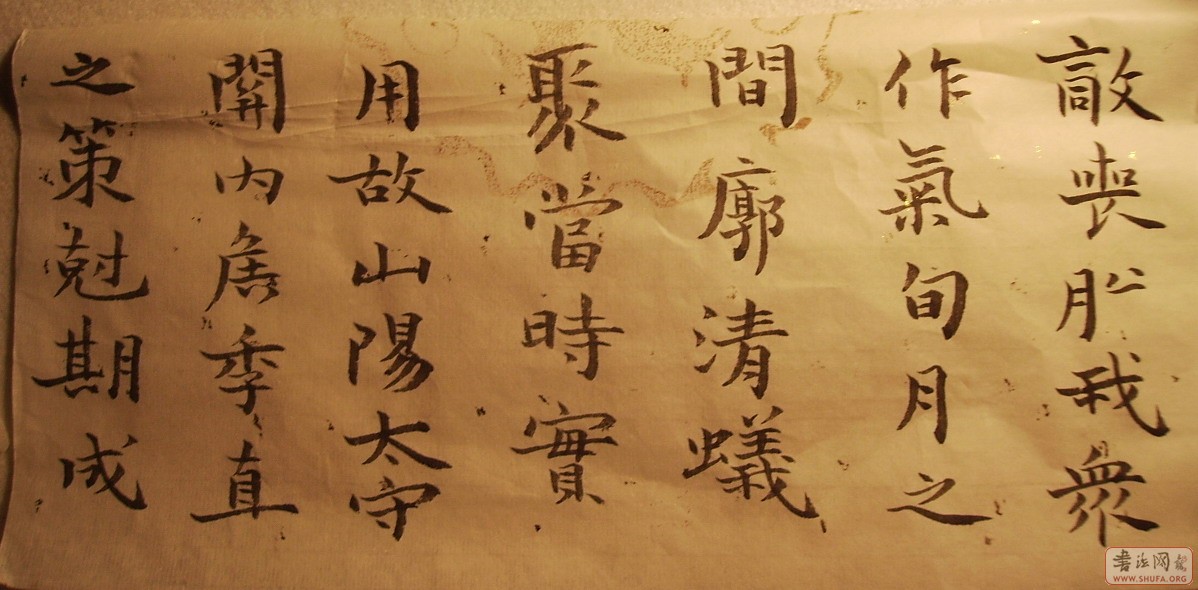 敵喪膽我衆
作氣旬月之
間廓清蟻
聚當時實
用故山陽太守
關內侯季直
之策尅期成
書法网
WWW.SHUFA.ORG